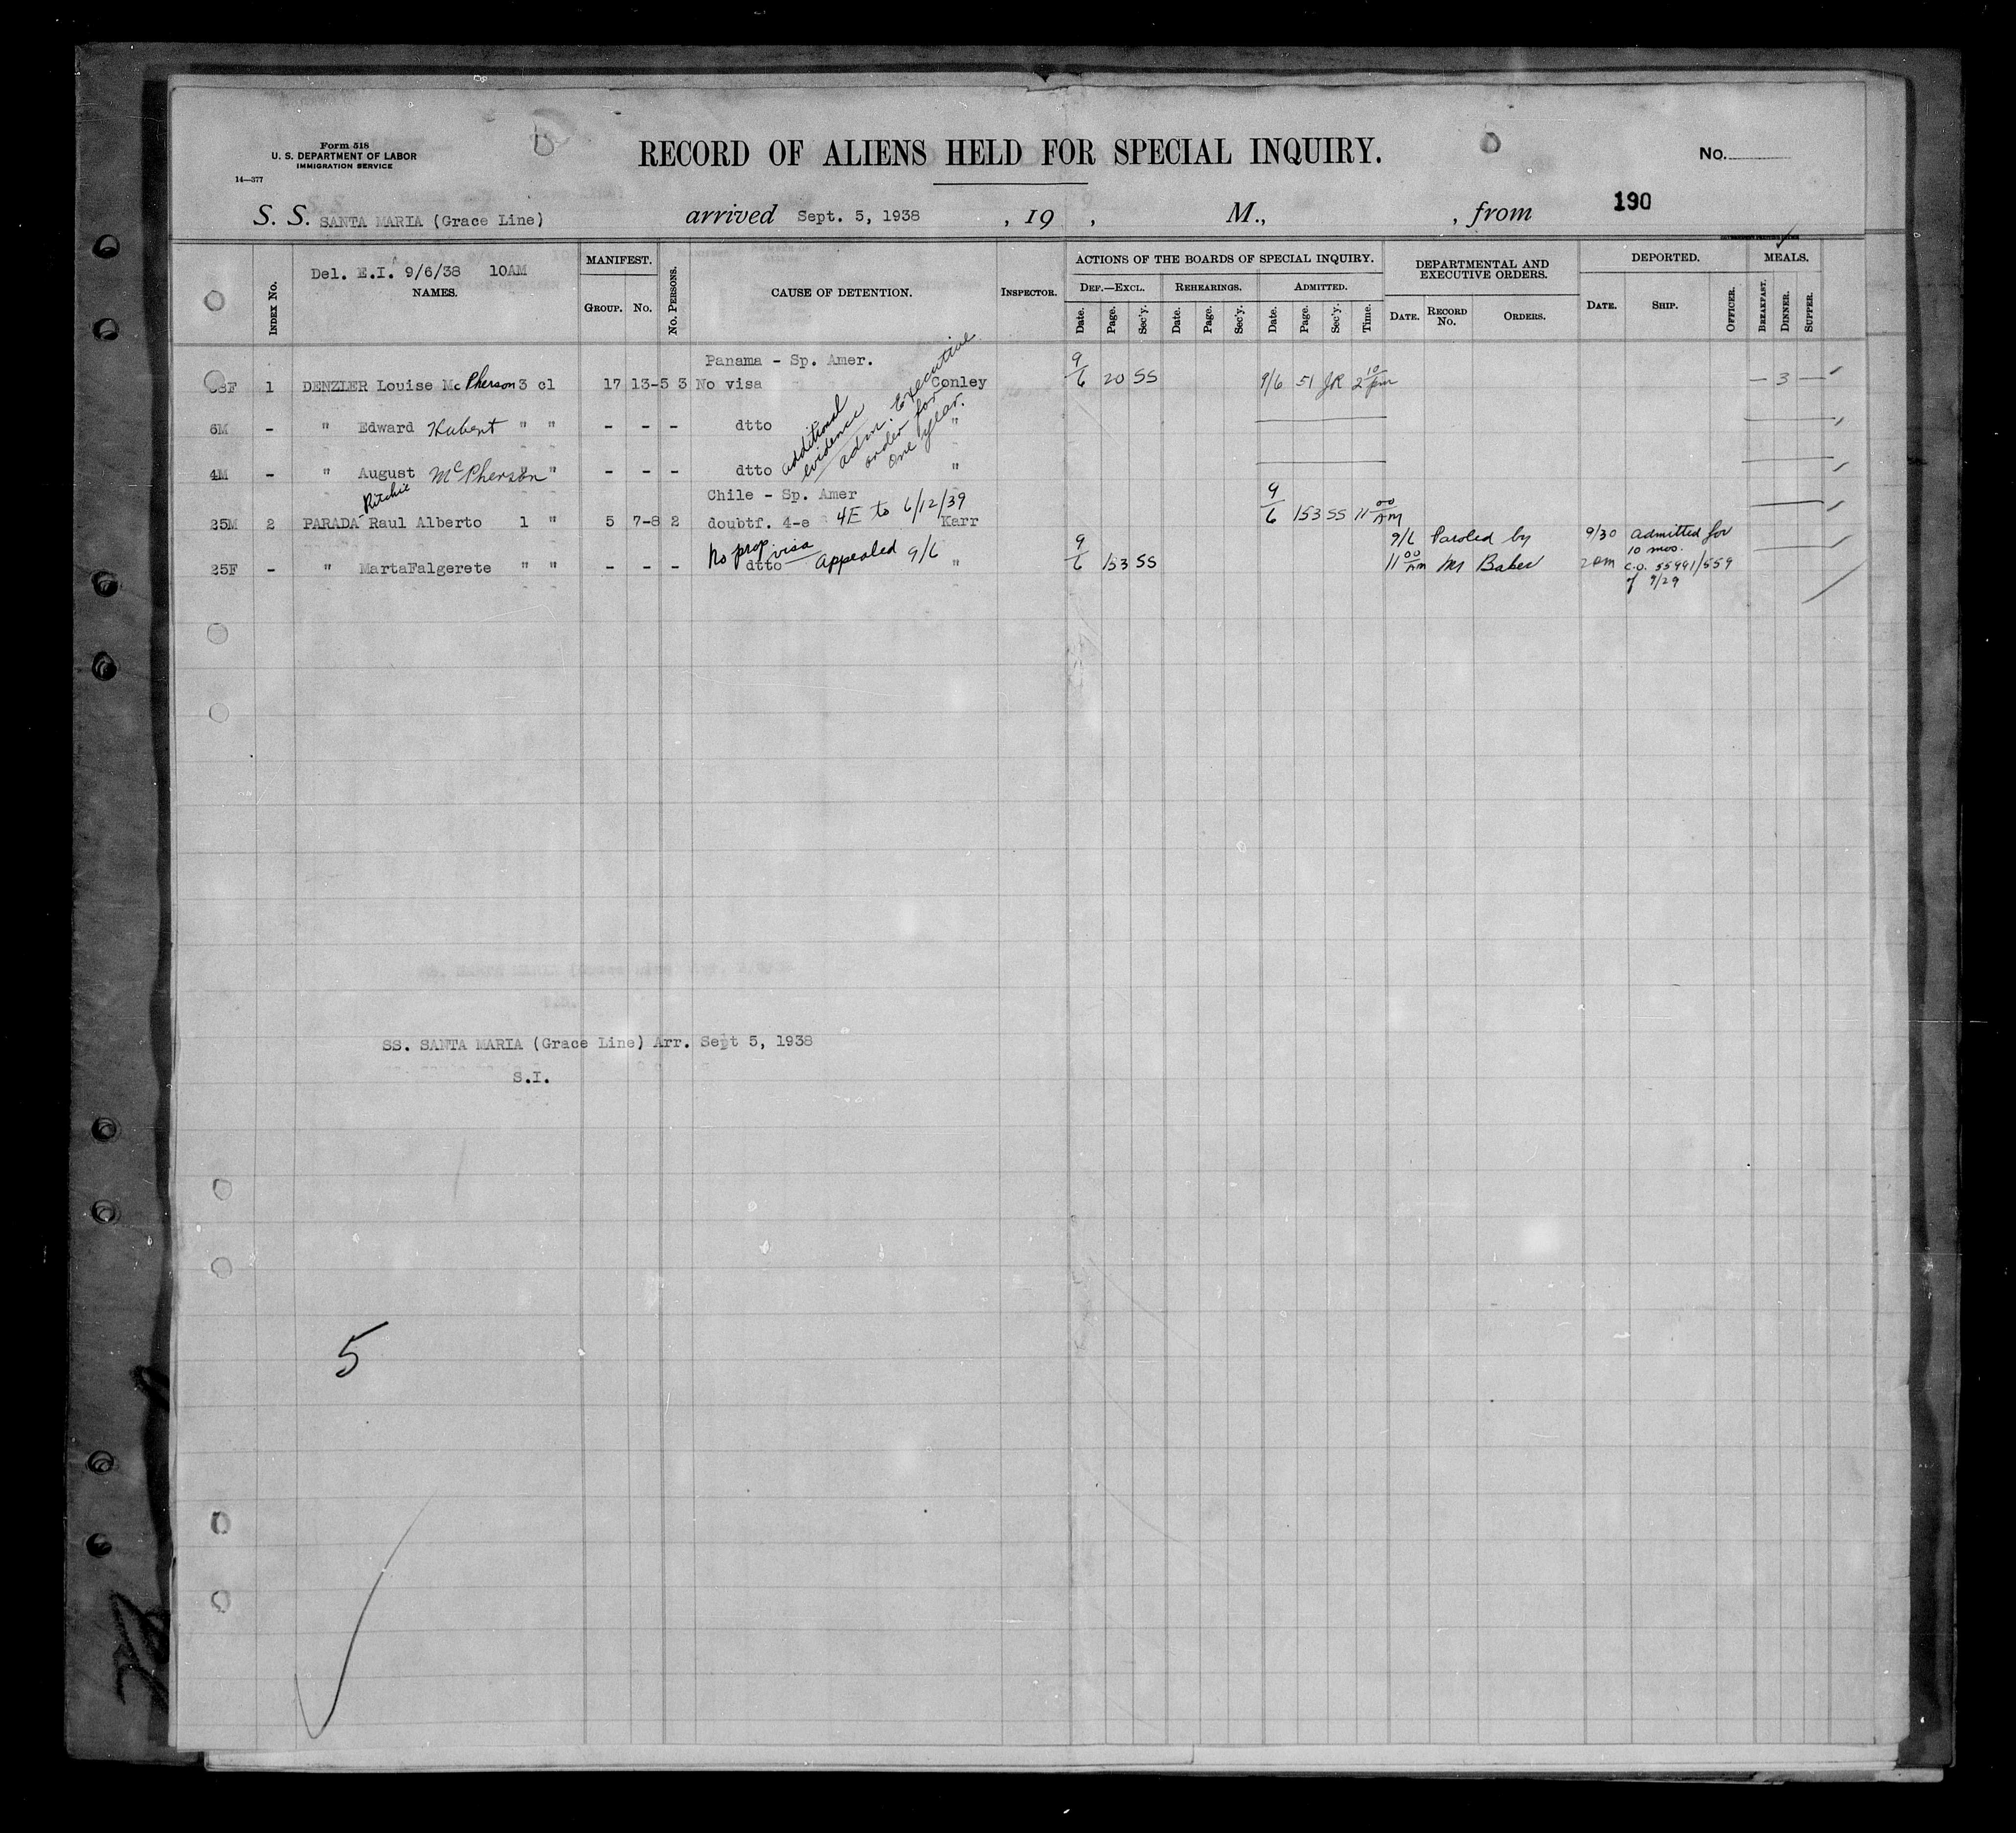 Form 518
U. S. DEPARTMENT OF LABOR
IMMIGRATION SERVICE
14—377
RECORD OF ALIENS HELD FOR SPECIAL INQUIRY.
No.
190
S. S. SANTA MARIA (Grace Line) arrived Sept. 5, 1938 , 19 , M., , from
Del. E.I. 9/6/38 10AM
INDEX No. NAMES. MANIFEST. GROUP. No. No. PERSONS. CAUSE OF DETENTION. INSPECTOR.
ACTIONS OF THE BOARDS OF SPECIAL INQUIRY. DEPARTMENTAL AND EXECUTIVE ORDERS. DEPORTED. MEALS.
DEF.—EXCL. REHEARINGS. ADMITTED.
Date. Page. Sec'y. Date. Page. Sec'y. Date. Page. Sec'y. Time. DATE. RECORD No. ORDERS. DATE. SHIP. OFFICER. BREAKFAST. DINNER. SUPPER.
Panama - Sp. Amer.
1 DENZLER Louise McPherson 3 cl 17 13-5 3 No visa Conley 9/6 20 SS 9/6 51 JR 2 10/pm — 3 —
6M - " Edward Hubert " " - - - dtto "
additional evidence
adm. Executive order for one year.
4M - " August McPherson " " - - - dtto "
Ritchie
Chile - Sp. Amer
25M 2 PARADA Raul Alberto 1 " 5 7-8 2 doubtf. 4-e 4E to 6/12/39 Karr 9/6 153 SS 11 00 AM
No prop. visa
9/6 Paroled by 9/30 Admitted for
10 mos.
25F - " MartaFalgerete " " - - - dtto Appealed 9/6 " 9/6 153 SS 11 00 AM Mr Baker 2 pm C.O. 55991/559
of 9/29
SS. SANTA MARIA (Grace Line) Arr. Sept 5, 1938
S.I.
5